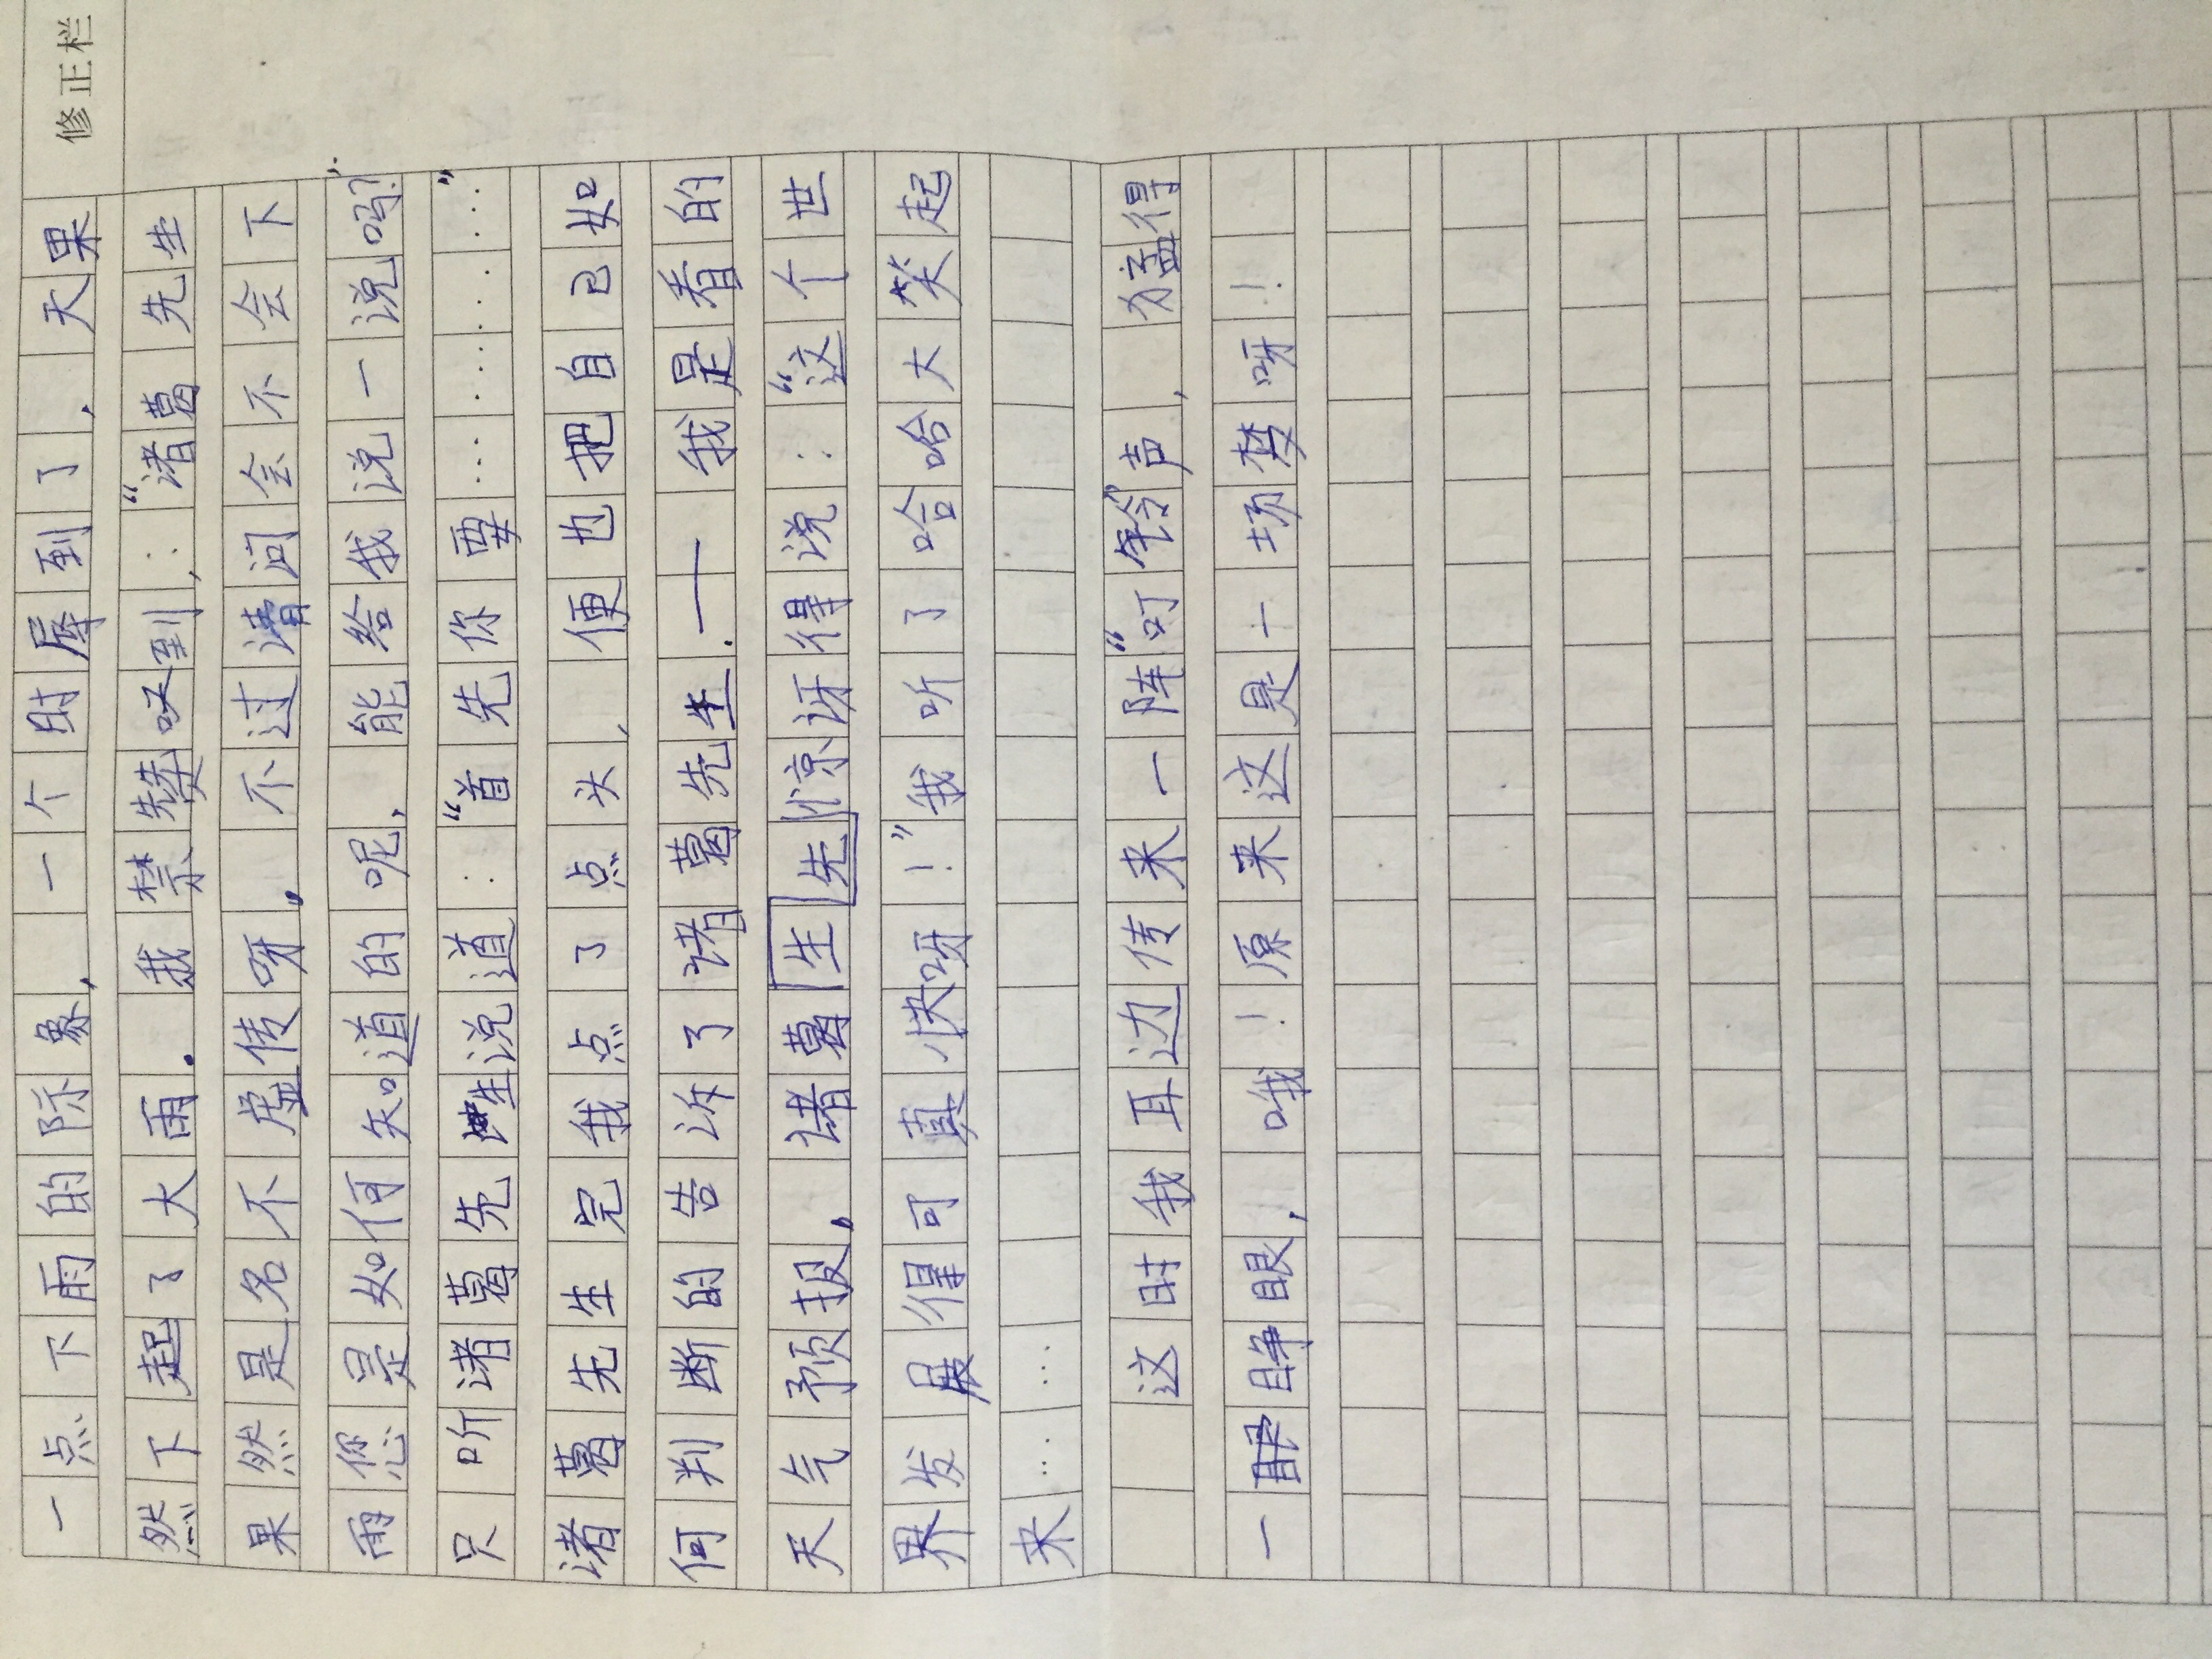 修正栏
一点下雨的际象,一个时辰到了,天果
然下起了大雨.我禁赞叹到,:“诸葛先生
果然是名不虚传呀,不过请问会不会下
雨您是如何知道的呢,能给我说一说吗?”
只听诸葛先生说道:“首先你要…………”
诸葛先生完我点了点头,便也把自己如
何判断的告诉了诸葛先生.——我是看的
天气预报,诸葛生先惊讶得说:“这个世
界发展得可真快呀!”我听了哈哈大笑起
来……
这时我耳边传来一阵“叮铃”声,猛得
一睁眼,哦!原来这是一场梦呀!